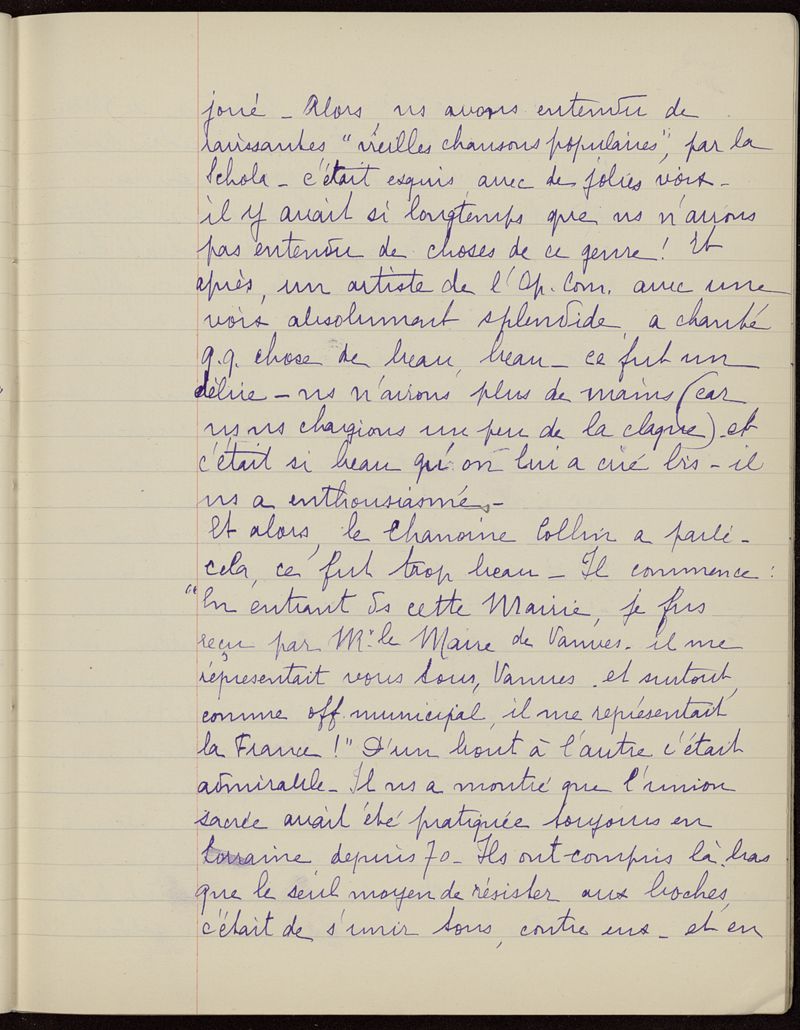 joué _ Alors, ns avons entendu de
ravissantes "vieilles chansons populaires", par la
Schola _ c'était exquis, avec de jolies voix _
il y avait si longtemps que ns n'avions
pas entendu de choses de ce genre ! Et
après, un artiste de l'Op. Com. avec une
voix absolument splendide, a chanté
q.q. chose de beau, beau _ ce fut un
délire _ ns n'avions plus de mains (car
ns ns chargions un peu de la claque) et
c'était si beau qu'on lui a crié bis _ il
ns a enthousiasmés _
Et alors, le Chanoine Collin a parlé _
cela, ce fut trop beau _ Il commence :
"En entrant ds cette Mairie, je fus
reçu par Mr. le Maire de Vanves. il me
représentait vous tous, Vanves . et surtout,
comme off. municipal, il me représentait
la France !" D'un bout à l'autre c'était
admirable _ Il ns a montré que l'union
sacrée avait été pratiquée toujours en
Lorraine depuis 70 _ Ils ont compris là-bas
que le seul moyen de résister aux boches,
c'était de s'unir tous, contre eux _ et en